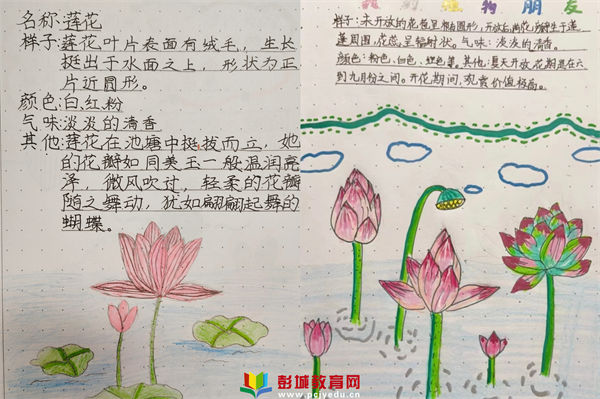 名称:莲花
样子:莲花叶片表面有绒毛，生长
挺出于水面之上，形状为正
片近圆形。
颜色:白.红.粉
气味:淡淡的清香
其他:莲花在池塘中挺拔而立，她
的花瓣如同美玉一般温润亮
泽，微风吹过，轻柔的花瓣
随之舞动，犹如翩翩起舞的
蝴蝶。
我的植物朋友
样子:未开放的花苞呈椭圆形，开放后，
莲蓬周围，花蕊呈辐射状。气味:淡淡的清香。
颜色:粉色、白色、 其他:夏天开放花期是在六
到九月份之间。开花期间，观赏价值极高。
彭城教育网
www.pcjyedu.cn